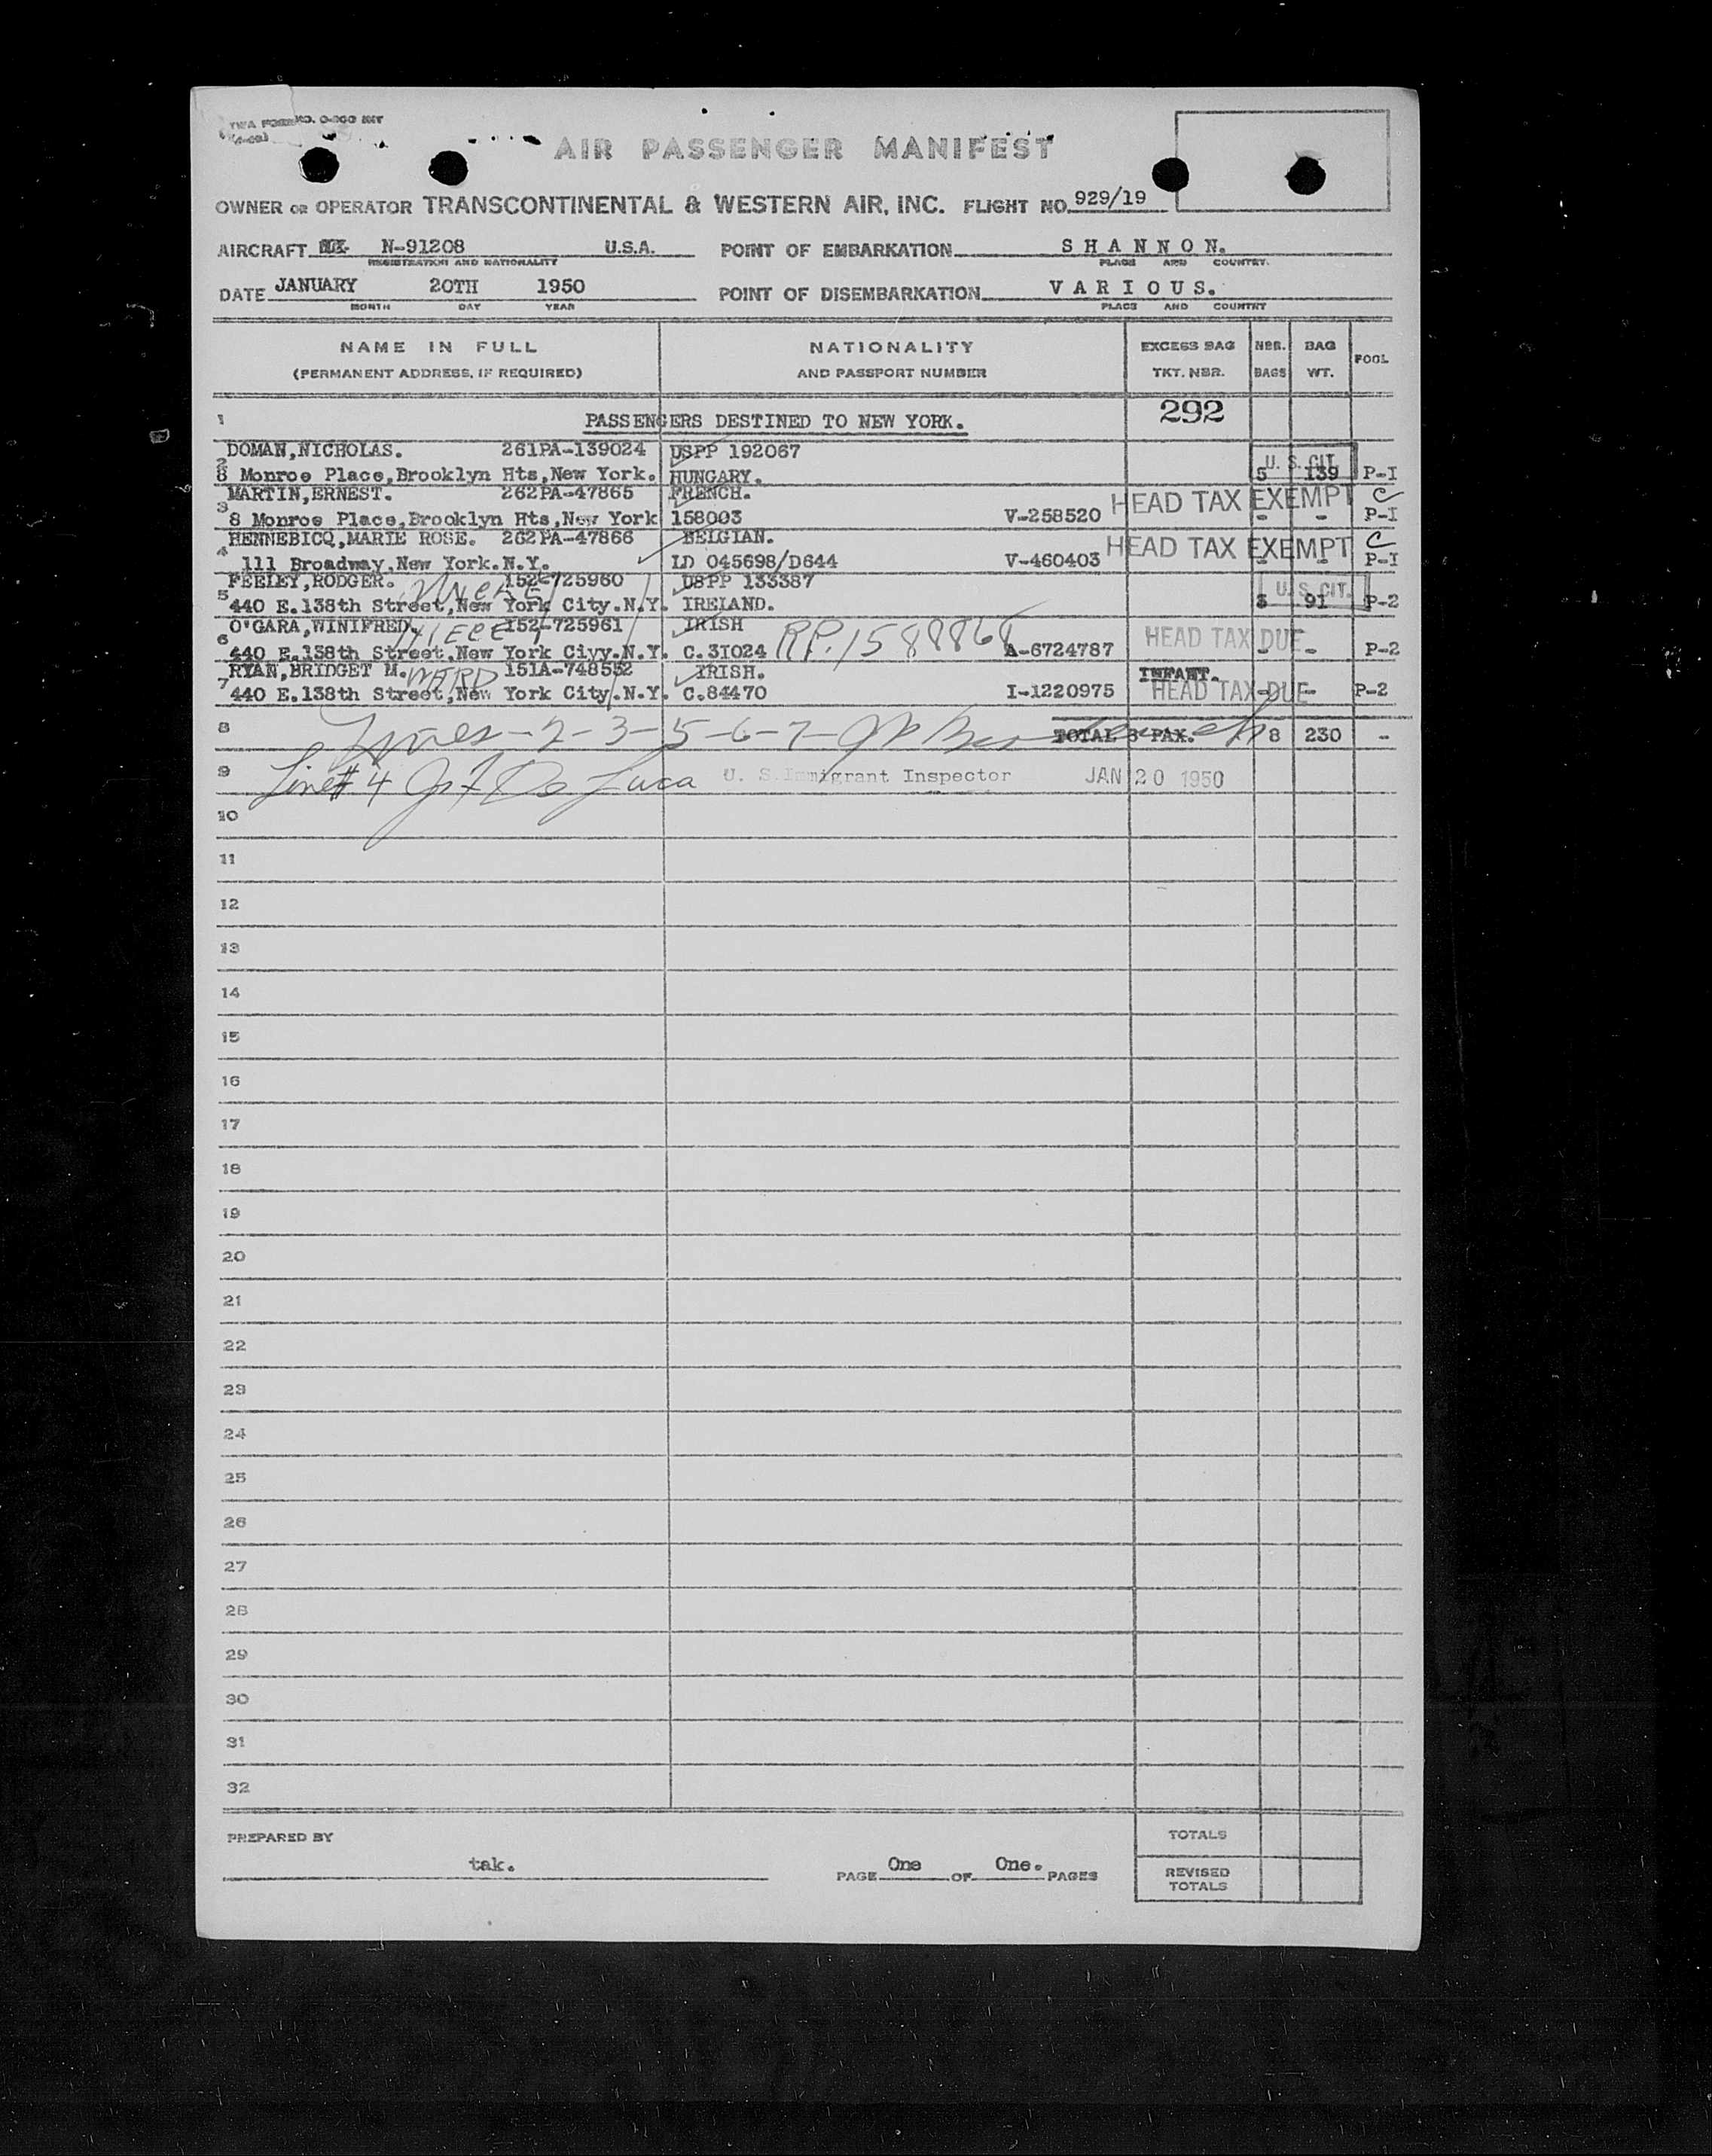 AIR PASSENGER MANIFEST
OWNER OR OPERATOR TRANSCONTINENTAL & WESTERN AIR, INC. FLIGHT NO. 929/19
AIRCRAFT N-91208 U.S.A. POINT OF EMBARKATION S H A N N O N.
REGISTRATION AND NATIONALITY PLACE AND COUNTRY.
DATE JANUARY 20TH 1950 POINT OF DISEMBARKATION V A R I O U S.
MONTH DAY YEAR PLACE AND COUNTRY
NAME IN FULL NATIONALITY EXCESS BAG NBR. BAG POOL
(PERMANENT ADDRESS, IF REQUIRED) AND PASSPORT NUMBER TKT. NBR. BAGS WT.
1 PASSENGERS DESTINED TO NEW YORK. 292
DOMAN,NICHOLAS. 261PA-139024 USPP 192067 U. S. CIT.
2 8 Monroe Place,Brooklyn Hts,New York. HUNGARY. 5 139 P-I
MARTIN,ERNEST. 262PA-47865 FRENCH. HEAD TAX EXEMPT C
3 8 Monroe Place,Brooklyn Hts,New York 158003 V-258520 - - P-I
HENNEBICQ,MARIE ROSE. 262PA-47866 BELGIAN. HEAD TAX EXEMPT C
4 111 Broadway,New York.N.Y. LD 045698/D644 V-460403 - - P-I
FEELEY,RODGER. UNCLE 152-725960 USPP 133387 U. S. CIT.
5 440 E.138th Street,New York City.N.Y. IRELAND. 3 91 P-2
O'GARA,WINIFRED. NIECE 152-725961 IRISH RP.1588868 HEAD TAX DUE
6 440 E.138th Street,New York Ciyy.N.Y. C.31024 A-6724787 - - P-2
RYAN,BRIDGET M. WARD 151A-748552 IRISH. INFANT.
7 440 E.138th Street,New York City.N.Y. C.84470 I-1220975 HEAD TAX DUE - - P-2
8 Lines-2-3-5-6-7- TOTAL PAX. 8 230 -
9 Line# 4 Jos F De Luca U. S. Immigrant Inspector JAN 20 1950
10
11
12
13
14
15
16
17
18
19
20
21
22
23
24
25
26
27
28
29
30
31
32
PREPARED BY TOTALS
tak. PAGE One OF One. PAGES REVISED
TOTALS